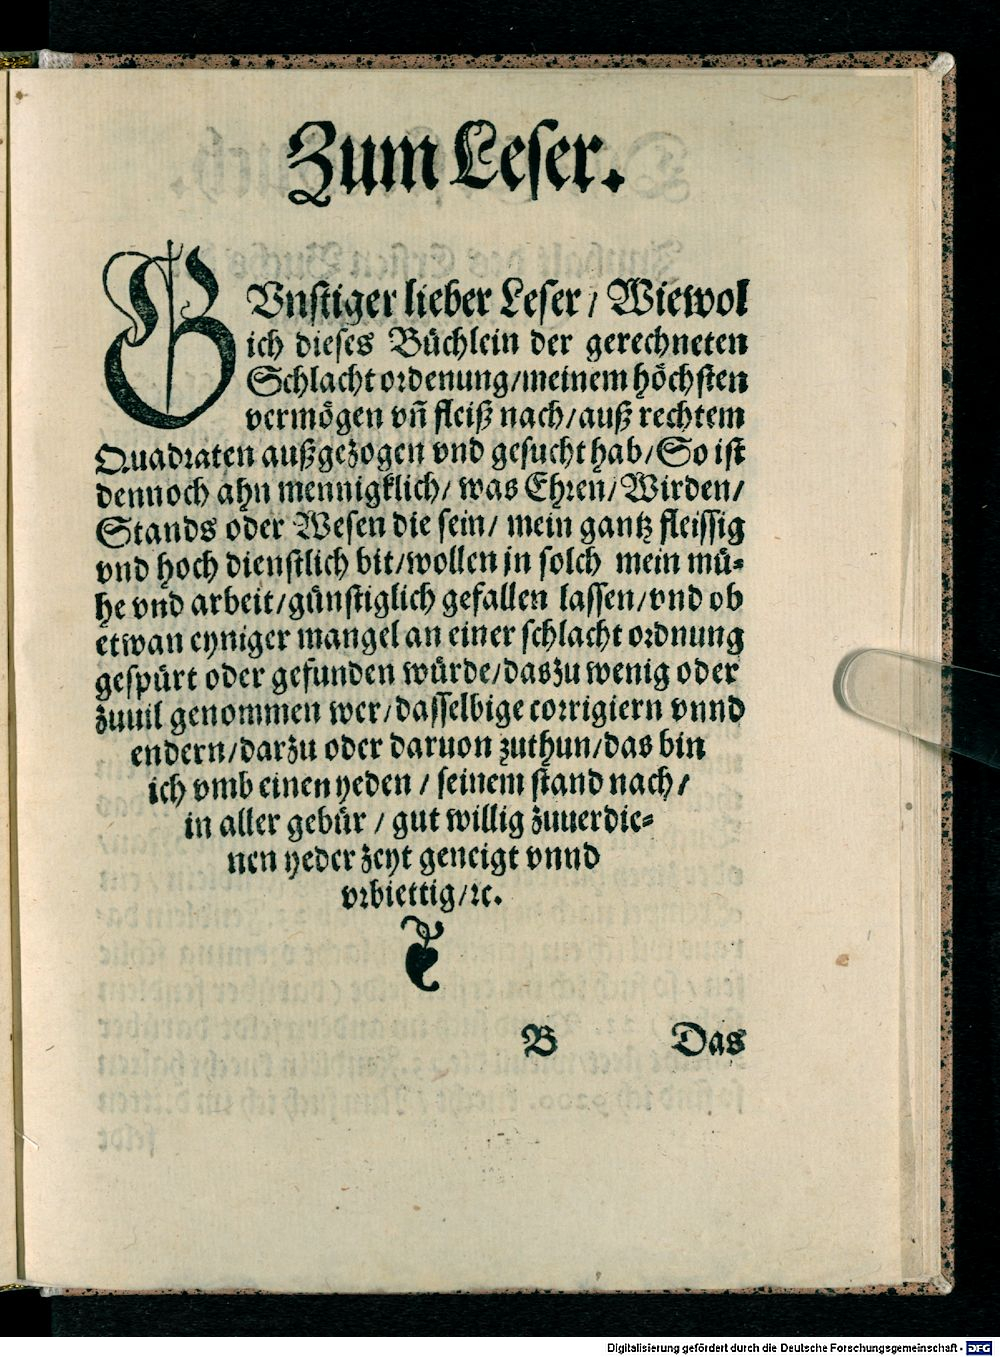 Zum Leser.
GVnstiger lieber Leser / Wiewol
ich dieses Büchlein der gerechneten
Schlacht ordenung/meinem höchsten
vermögen vñ fleiß nach/auß rechtem
Quadraten außgezogen vnd gesucht hab/So ist
dennoch ahn mennigklich/ was Ehren/Wirden/
Stands oder Wesen die sein/ mein gantz fleissig
vnd hoch dienstlich bit/wollen jn solch mein mü-
he vnd arbeit/günstiglich gefallen lassen/vnd ob
etwan eyniger mangel an einer schlacht ordnung
gespürt oder gefunden würde/das zu wenig oder
zuuil genommen wer/dasselbige corrigiern vnnd
endern/darzu oder daruon zuthun/das bin
ich vmb einen yeden / seinem stand nach/
in aller gebür / gut willig zuuerdie-
nen yeder zeyt geneigt vnnd
vrbiettig/ꝛc.
B Das
Digitalisierung gefördert durch die Deutsche Forschungsgemeinschaft - DFG